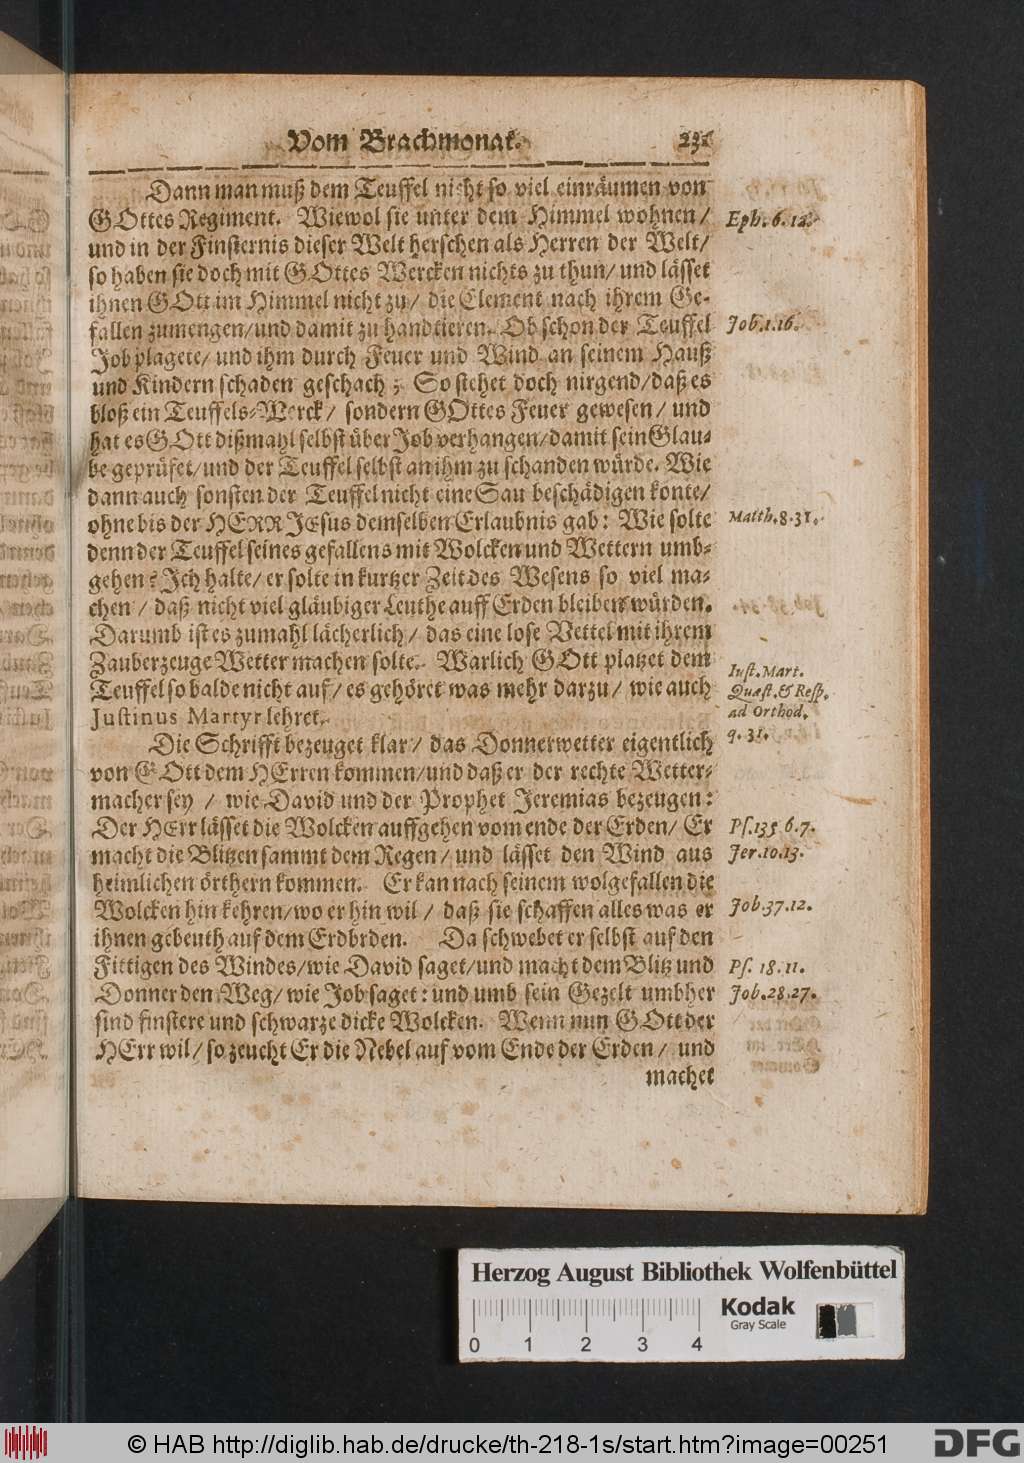 Vom Brachmonat. 231
Dann man muß dem Teuffel nicht so viel einräumen von
GOttes Regiment. Wiewol sie unter dem Himmel wohnen /
Eph. 6.12.
und in der Finsternis dieser Welt herschen als Herren der Welt /
so haben sie doch mit GOttes Wercken nichts zu thun / und lässet
ihnen GOtt im Himmel nicht zu / die Element nach ihrem Ge-
fallen zumengen / und damit zu handtieren. Ob schon der Teuffel
Job.1.16.
Job plagete / und ihm durch Feuer und Wind an seinem Hauß
und Kindern schaden geschach ; So stehet doch nirgend / daß es
bloß ein Teuffels-Werck / sondern GOttes Feuer gewesen / und
hat es GOtt dißmahl selbst über Job verhangen / damit sein Glau-
be geprüfet / und der Teuffel selbst an ihm zu schanden würde. Wie
dann auch sonsten der Teuffel nicht eine Sau beschädigen konte /
ohne bis der HERR JEsus demselben Erlaubnis gab : Wie solte
Matth.8.31.
denn der Teuffel seines gefallens mit Wolcken und Wettern umb-
gehen ? Ich halte / er solte in kurtzer Zeit des Wesens so viel ma-
chen / daß nicht viel gläubiger Leuthe auff Erden bleiben würden.
Darumb ist es zumahl lächerlich / das eine lose Vettel mit ihrem
Zauberzeuge Wetter machen solte. Warlich GOtt platzet dem
Teuffel so balde nicht auf / es gehöret was mehr darzu / wie auch
Justinus Martyr lehret.
Iust. Mart.
Quæst. & Resp.
ad Orthod.
q. 31.
Die Schrifft bezeuget klar / das Donnerwetter eigentlich
von GOtt dem HErren kommen / und daß er der rechte Wetter-
macher sey / wie David und der Prophet Jeremias bezeugen :
Der HErr lässet die Wolcken auffgehen vom ende der Erden / Er
Ps.135 6.7.
macht die Blitzen sammt dem Regen / und lässet den Wind aus
Jer.10.13.
heimlichen örthern kommen. Er kan nach seinem wolgefallen die
Wolcken hin kehren / wo er hin wil / daß sie schaffen alles was er
Job.37.12.
ihnen gebeuth auf dem Erdbrden. Da schwebet er selbst auf den
Fittigen des Windes / wie David saget / und macht dem Blitz und
Ps. 18.11.
Donner den Weg / wie Job saget : und umb sein Gezelt umbher
Job.28.27.
sind finstere und schwarze dicke Wolcken. Wenn nun GOtt der
HErr wil / so zeucht Er die Nebel auf vom Ende der Erden / und
machet
Herzog August Bibliothek Wolfenbüttel
Kodak
Gray Scale
0 1 2 3 4
© HAB http://diglib.hab.de/drucke/th-218-1s/start.htm?image=00251
DFG